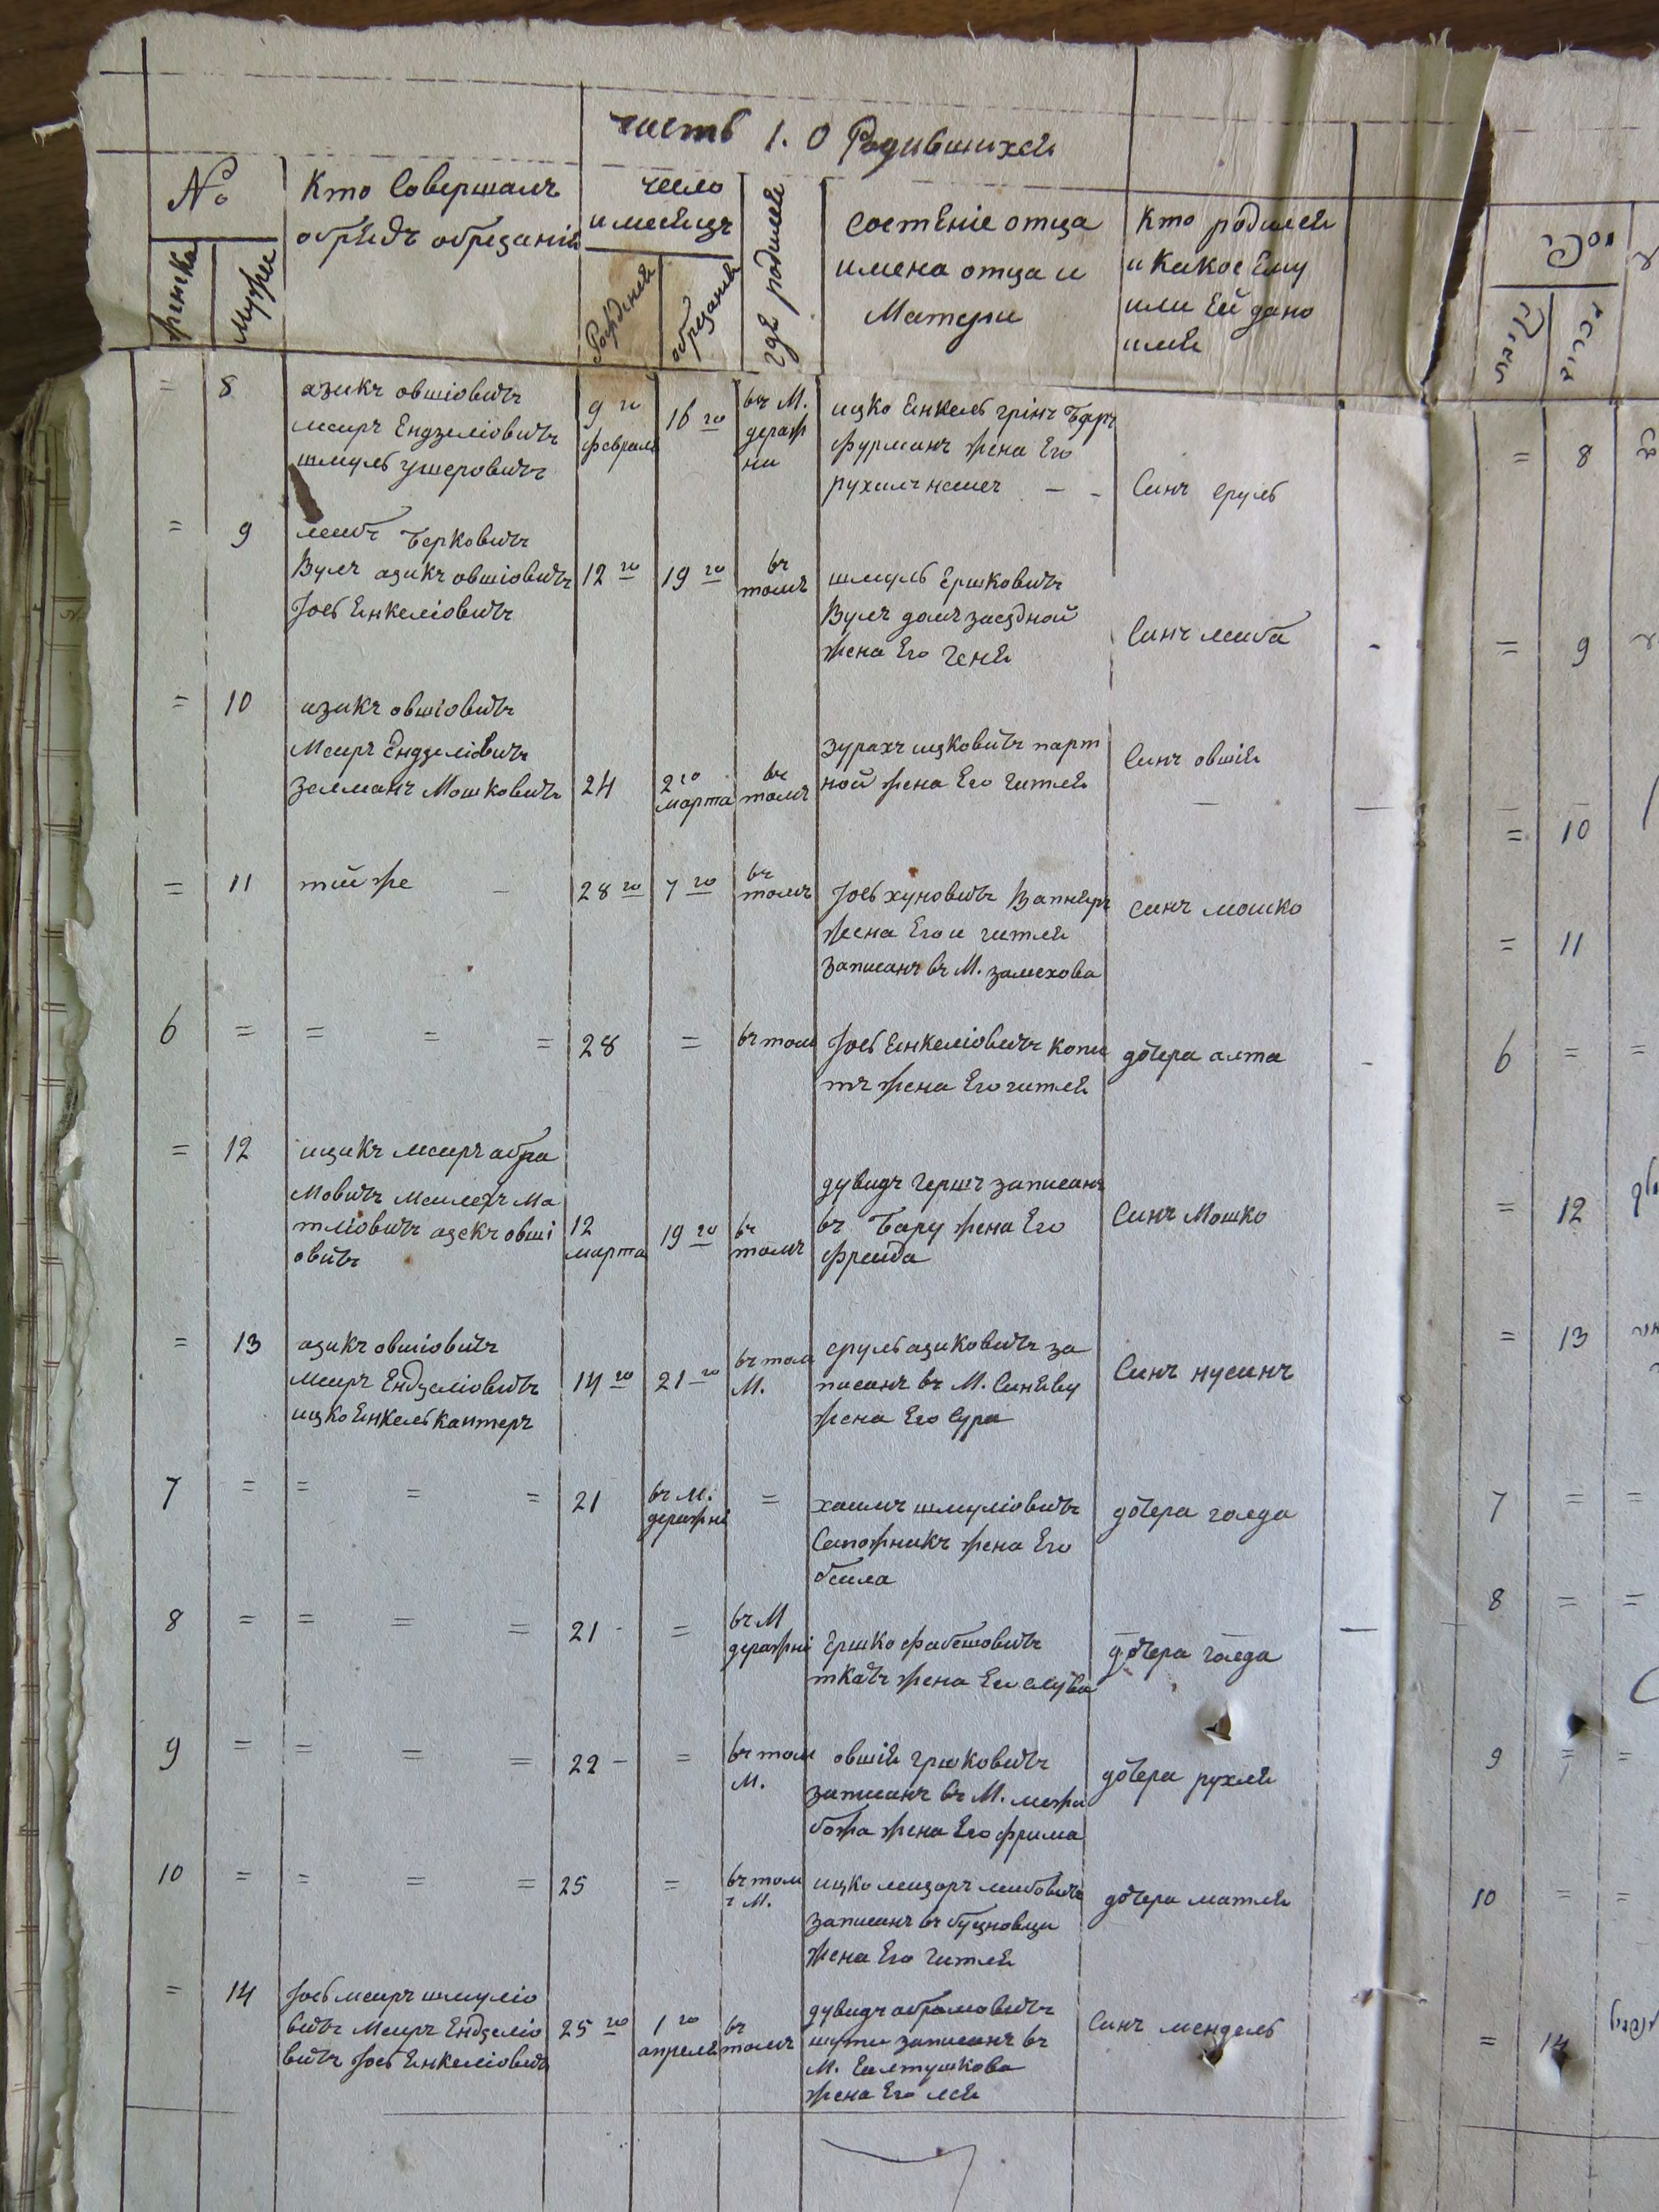 часть 1. О Родившихся
№
женска
мужи
Кто совершалъ
обрядъ обрезанія
число
и месяцъ
Рожденія
обрезанія
где родился
состеніе отца
имена отца и
Матери
Кто родился
и какое Ему
или Ей дано
имя
= 8
азикъ овшіовичъ
меиръ Ендзеліовичъ
шмуль ушеровичъ
9 го
февраля
16 го
въ М.
деражни
ицко Енкель грінъ Баръ
фурманъ жена Его
рухль
Синъ сруль
= 9
леибъ Берковичъ
Вулъ азикъ овшіовичъ
Іось Енкеліовичъ
12 го
19 го
въ
томъ
шмуль Ершковичъ
Вулъ домъ заездной
жена Его геня
Синъ леиба
= 10
азикъ овшіовичъ
Меиръ Ендзеліовичъ
Залманъ Мошковичъ
24
2 го
марта
въ
томъ
зурахъ ицковичъ парт
ной жена Его гитля
Синъ овшія
= 11
тий же
28 го
7 го
въ
томъ
Іось хуновичъ Вапняръ
жена Его и гитля
Записанъ въ М. замехова
синъ мошко
6 = = = =
28 =
въ том
Іось Енкеліовичъ копи
тъ жена Его гитля
дочера алта
= 12
ицикъ меиръ абра
мовичъ Меилехъ Ма
тліовичъ азекъ овші
овичъ
12
марта
19 го
въ
томъ
дувидъ Гершъ записанъ
въ Бару жена Его
фреида
Синъ Мошко
= 13
азикъ овшіовичъ
меиръ Ендзеліовичъ
ицко Енкель кантеръ
14 го
21 го
въ том
М.
сруль азиковичъ за
писанъ въ М. Синяву
жена Его Сура
Синъ нусинъ
7 = = = =
21
въ М.
деражні
=
хаимъ шмуліовичъ
Сапожникъ жена Его
беила
дочера голда
8 = = = =
21 - =
въ М
деражні
Ершко фабешовичъ
ткачъ жена Его
дочера голда
9 = = = =
22 - =
въ том
М.
овшія гршковичъ
записанъ въ М. межи
божа жена Его фрима
дочера рухля
10 = = = =
25 =
въ том
ъ М.
ицко леизоръ леибовичъ
записанъ въ буцновци
жена Его гитля
дочера матля
= 14
Іось меиръ шмуліо
вичъ Меиръ Ендзеліо
вичъ Іось Енкеліовичъ
25 го
1 го
апреля
въ
томъ
дувидъ абрамовичъ
записанъ въ
М. Елтушкова
жена Его лея
Синъ мендель
= 8
= 9
= 10
= 11
6 = =
= 12
= 13
7 = =
8 = =
9 = =
10 = =
= 14